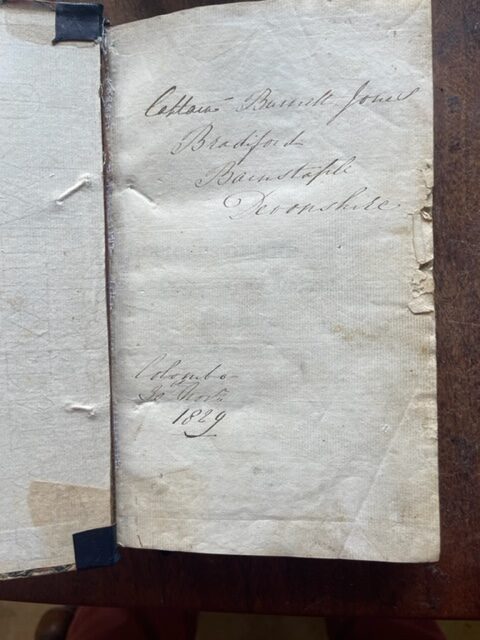 Captain Burnett Jones
Bradiford
Barnstaple
Devonshire
Colombo
30 Novr
1829